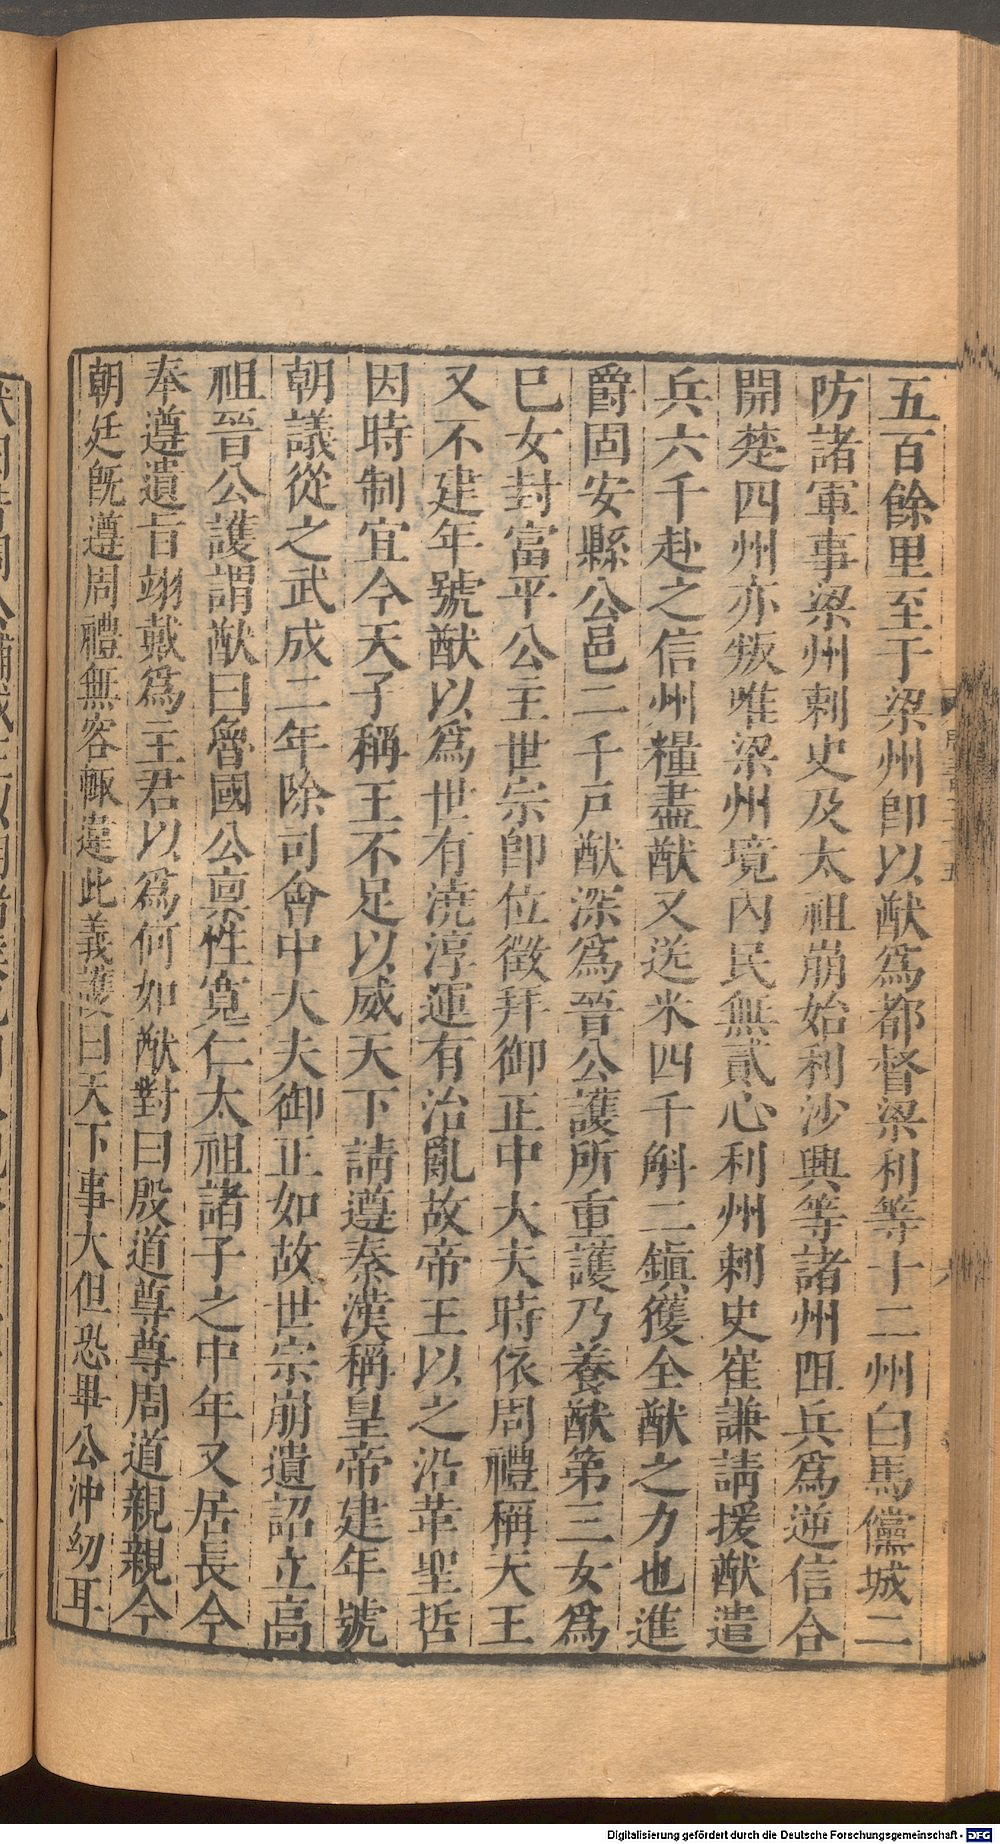 五百餘里至于梁州卽以猷爲都督梁利等十二州白馬儻城二
防諸軍事梁州刺史及太祖崩始利沙興等諸州阻兵爲逆信合
開楚四州亦叛唯梁州境內民無貳心利州刺史崔謙請援猷遣
兵六千赴之信州糧盡猷又送米四千斛二鎮獲全猷之力也進
爵固安縣公邑二千戸猷深爲晉公護所重護乃養猷第三女爲
巳女封富平公主世宗卽位徵拜御正中大夫時依周禮稱天王
又不建年號猷以爲世有澆淳運有治亂故帝王以之沿革聖哲
因時制宜今天子稱王不足以威天下請遵秦漢稱皇帝建年號
朝議從之武成二年除司會中大夫御正如故世宗崩遺詔立高
祖晉公護謂猷曰魯國公禀性寬仁太祖諸子之中年又居長今
奉遵遺旨翊戴爲主君以爲何如猷對曰殷道尊尊周道親親今
朝廷旣遵周禮無容輙違此義護曰天下事大但恐畢公沖幼耳
Digitalisierung gefördert durch die Deutsche Forschungsgemeinschaft - DFG